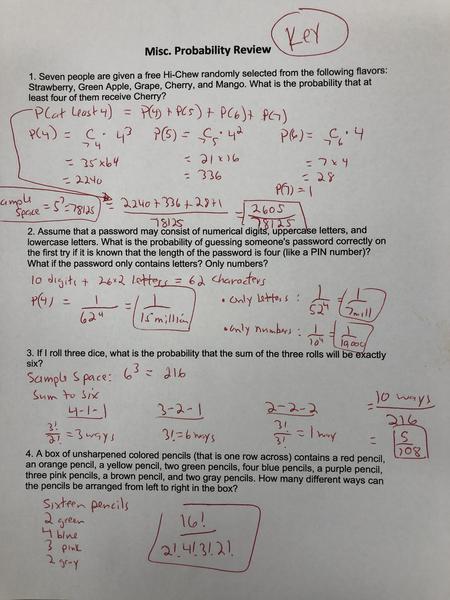 Key
Misc. Probability Review
1. Seven people are given a free Hi-Chew randomly selected from the following flavors:
Strawberry, Green Apple, Grape, Cherry, and Mango. What is the probability that at
least four of them receive Cherry?
P(at least 4) = P(4) + P(5) + P(6) + P(7)
P(4) = 7C4 · 4³ P(5) = 7C5 · 4² P(6) = 7C6 · 4
= 35×64 = 21×16 = 7×4
= 2240 = 336 = 28
P(7) = 1
Sample Space = 5⁷ = 78125 = 2240+336+28+1 / 78125 = 2605 / 78125
2. Assume that a password may consist of numerical digits, uppercase letters, and
lowercase letters. What is the probability of guessing someone's password correctly on
the first try if it is known that the length of the password is four (like a PIN number)?
What if the password only contains letters? Only numbers?
10 digits + 26×2 letters = 62 characters
P(4) = 1/62⁴ = 1/15 million • only letters : 1/52⁴ = 1/7mill
• only numbers : 1/10⁴ = 1/10,000
3. If I roll three dice, what is the probability that the sum of the three rolls will be exactly
six?
Sample Space: 6³ = 216
Sum to six
4-1-1 3-2-1 2-2-2 = 10 ways / 216
3!/2! = 3 ways 3! = 6 ways 3!/3! = 1 way = 5/108
4. A box of unsharpened colored pencils (that is one row across) contains a red pencil,
an orange pencil, a yellow pencil, two green pencils, four blue pencils, a purple pencil,
three pink pencils, a brown pencil, and two gray pencils. How many different ways can
the pencils be arranged from left to right in the box?
Sixteen pencils
2 green
4 blue
3 pink
2 gray
16!
2!·4!·3!·2!